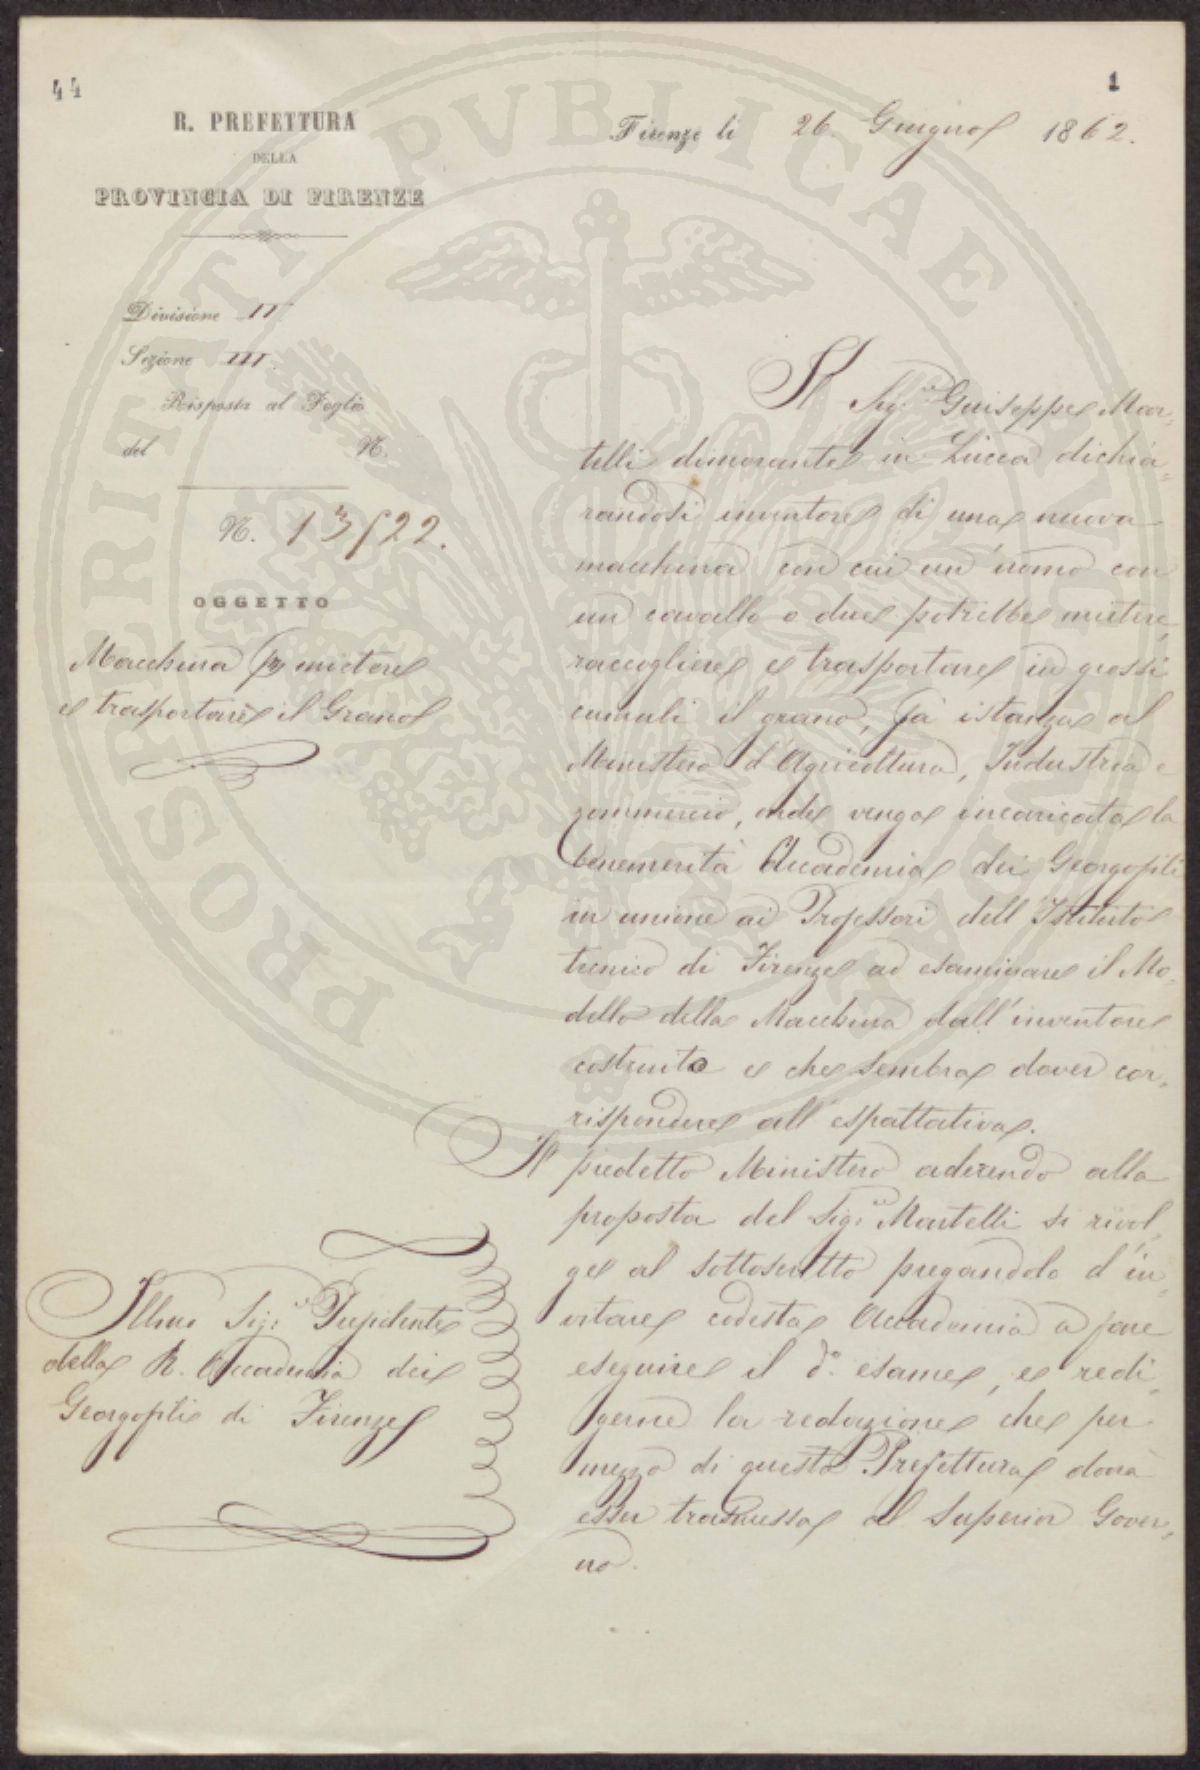 44
1
R. PREFETTURA
DELLA
PROVINCIA DI FIRENZE
Firenze li 26. Giugno 1862.
Divisione II
Sezione III.
Risposta al Foglio
del N.
N. 13522.
OGGETTO
Macchina per mietere
e trasportare il Grano
Il Sig.re Giuseppe Mar-
telli dimorante in Lucca dichia-
randosi inventore di una nuova
macchina con cui un uomo con
un cavallo o due potrebbe mietere
raccogliere e trasportare in grossi
cumuli il grano, fa istanza al
Ministero d'Agricoltura, Industria e
Commercio, onde venga incaricata la
benemerita Accademia dei Georgofili
in unione ai Professori dell'Istituto
tecnico di Firenze ad esaminare il Mo-
dello della Macchina dall'inventore
costruita e che sembra dover cor-
rispondere all'espattativa.
Il predetto Ministero aderendo alla
proposta del Sig.re Martelli si rivol-
ge al sottoscritto pregandolo d'in-
vitare codesta Accademia a fare
eseguire il d.o esame, e redi-
gerne la redazione che per
mezzo di questa Prefettura dovrà
esser trasmessa al Superior Gover-
no.
Illmo Sig.re Presidente
della R. Accademia dei
Georgofili di Firenze
PROSPERITATI PVBLICAE AVGENDAE